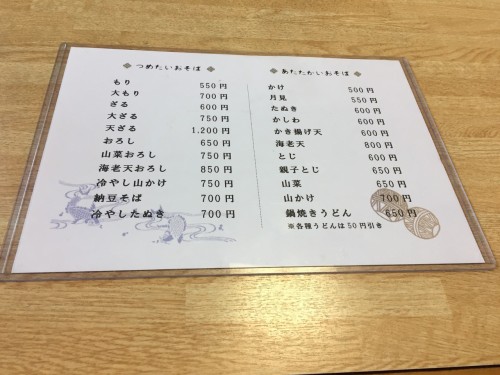 ◆ つめたいおそば ◆
もり 550円
大もり 700円
ざる 600円
大ざる 750円
天ざる 1,200円
おろし 650円
山菜おろし 750円
海老天おろし 850円
冷やし山かけ 750円
納豆そば 700円
冷やしたぬき 700円
◆ あたたかいおそば ◆
かけ 500円
月見 550円
たぬき 600円
かしわ 600円
かき揚げ天 600円
海老天 800円
とじ 600円
親子とじ 650円
山菜 650円
山かけ 700円
鍋焼きうどん 650円
※各種うどんは50円引き